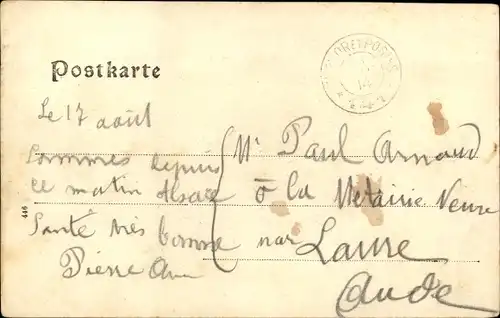 Postkarte
Le 17 août
Sommes depuis
ce matin Alsace
Santé très bonne
Pierre
Mr Paul Arnaud
à la Métairie Neuve
par Laure
Aude
446